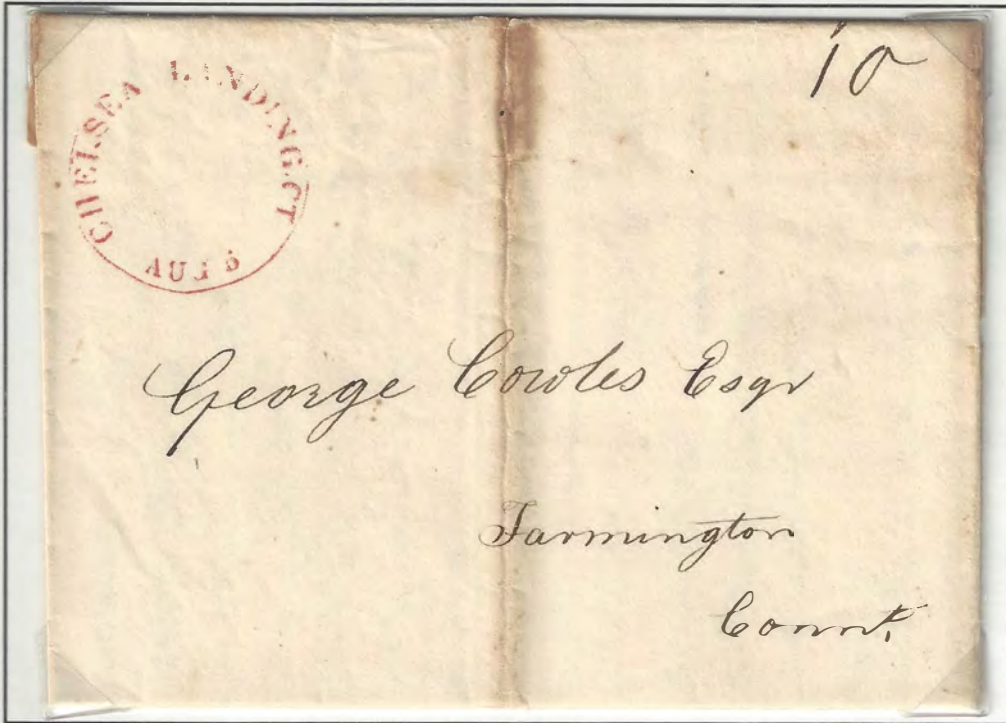 CHELSEA LANDING.CT
AUG 6
10
George Cowles Esqr
Farmington
Connt.